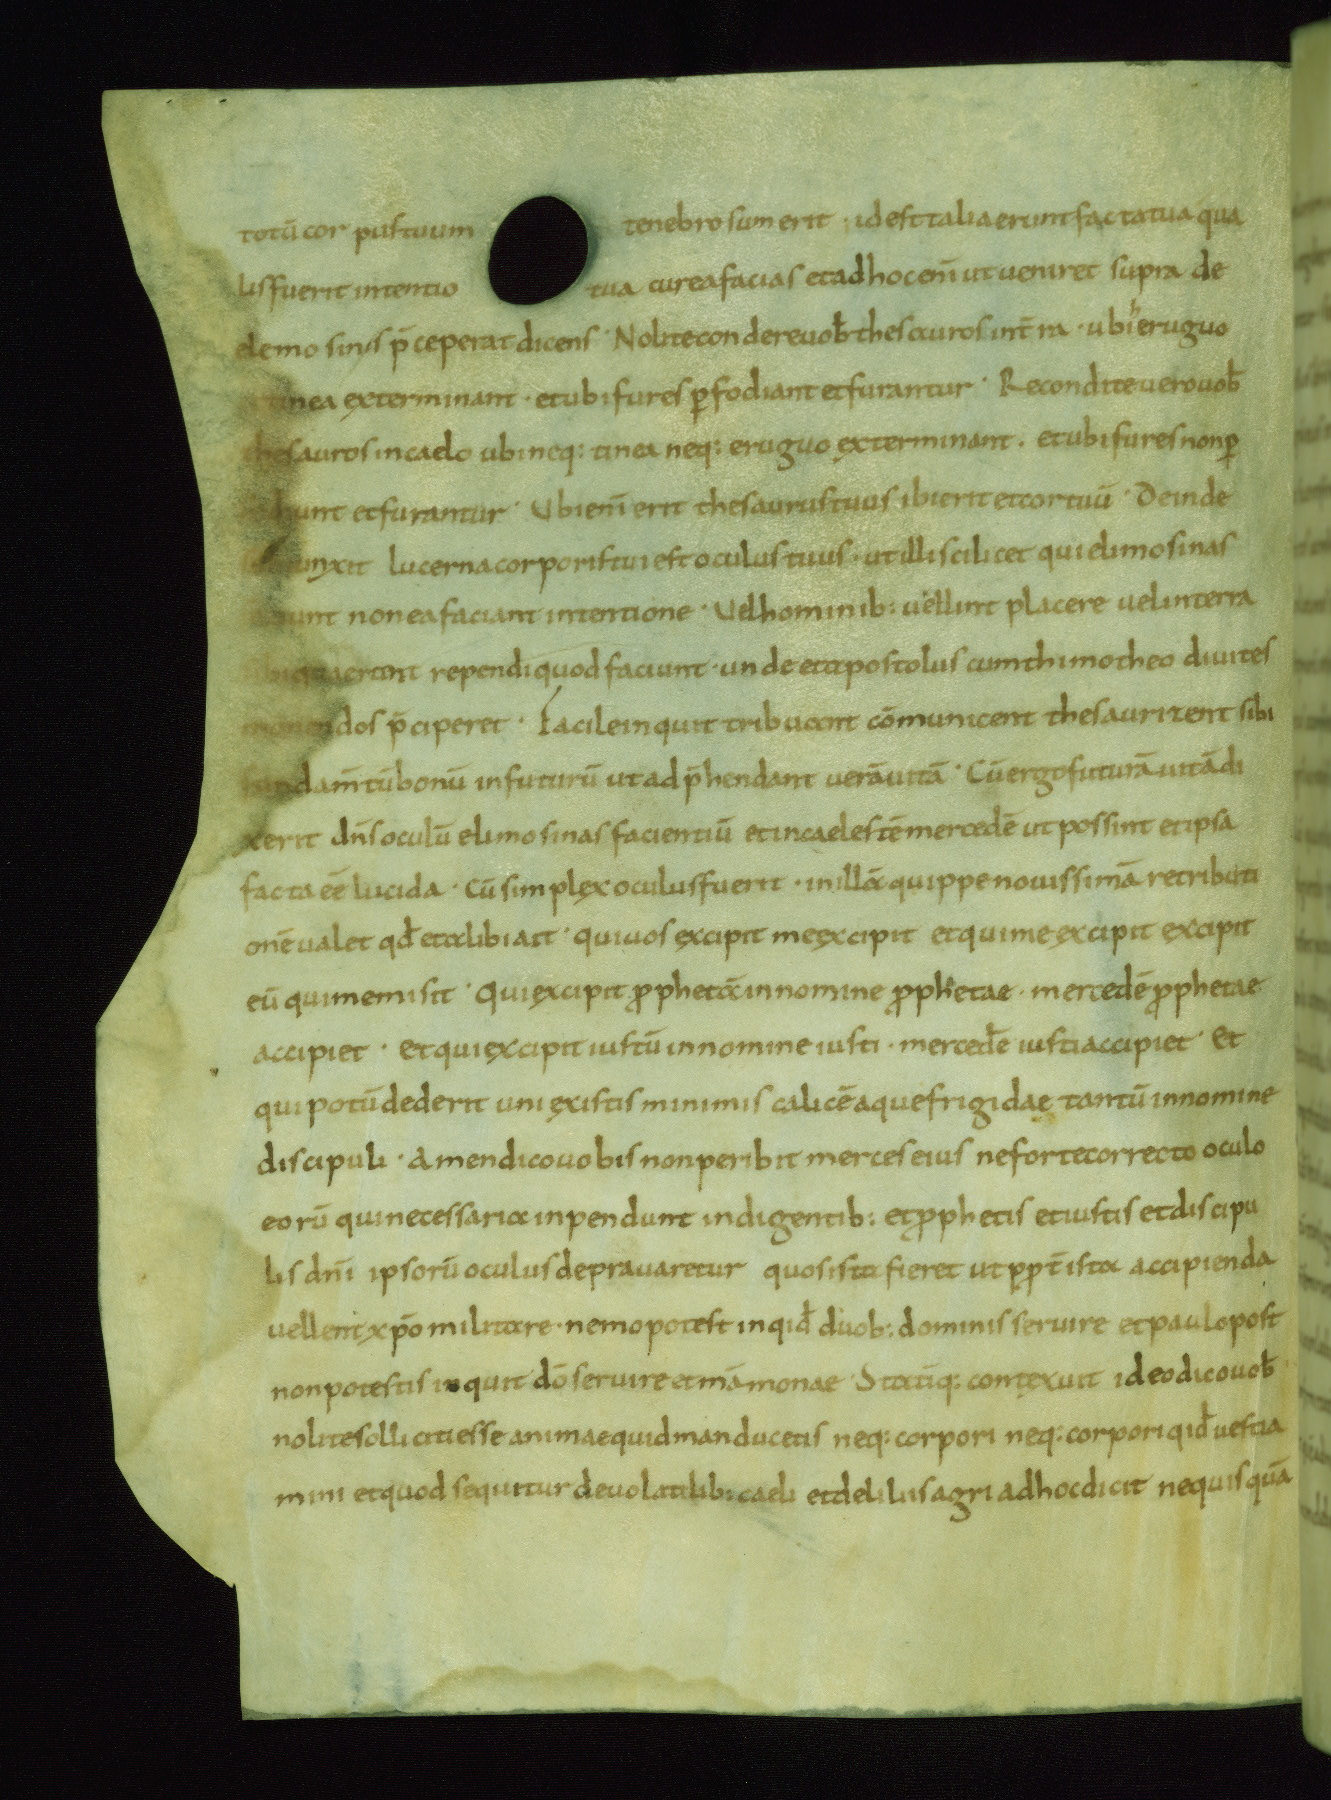 totū corpus tuum tenebrosum erit · id est talia erunt facta tua qua
lis fuerit intentio tua cur ea facias et ad hoc eni̅ ut veniret supra de
elemosinis p̄ceperat dicens · Nolite condere vob̅ thesauros in t̅ra · ubi erugvo
tinea exterminant · et ubi fures ꝑfodiant et furantur · Recondite vero vob̅
thesauros in caelo ubi neq: tinea neq: erugvo exterminant . et ubi fures non ꝑ
hunt et furantur · Ubi eni̅ erit thesaurus tuus ibi erit et cor tuū · Deinde
unxit lucerna corporis tui est oculus tuus · ut illi scilicet qui elimosinas
unt non ea faciant intentione · Vel hominib: vellint placere vel in terra
quaerant rependi quod faciunt · unde et apostolus cum thimotheo divites
dos p̄ciperet · Facile inquit tribuant cōmunicent thesaurizent sibi
fundam̄tū bonū in futurū ut adp̄hendant verā vitā · Cū ergo futurā vitā di
xerit dn̄s oculū elimosinas facientiū et in caelestē mercedē ut possint et ipsa
facta eē lucida · Cū simplex oculus fuerit · in illā quippe novissimā retributi
onē valet qđ et alibi ait · qui vos excipit me excipit et qui me excipit excipit
eū qui me misit · Qui excipit ꝓphetā in nomine ꝓphetae · mercedē ꝓphetae
accipiet · et qui excipit iustū in nomine iusti · mercedē iusti accipiet · Et
qui potū dederit uni ex istis minimis calicē aque frigidae tantū in nomine
discipuli · Amen dico vobis non peribit merces eius ne forte correcto oculo
eorū qui necessaria inpendunt indigentib: et ꝓphetis et iustis et discipu
lis dn̄i ipsorū oculus depravaretur a quos ista fieret ut ꝓpt̄ ista accipienda
vellent xp̄o militare · nemo potest inqid̄ duob: dominis servire et paulo post
non potestis inquit dō servire et māmonae · Statīq: contexuit ideo dico vob̅
nolite solliciti esse animae quid manducetis neq: corpori neq: corpori qid̄ vestia
mini et quod sequitur de volatilib: caeli et de liliis agri ad hoc dicit ne quisquā